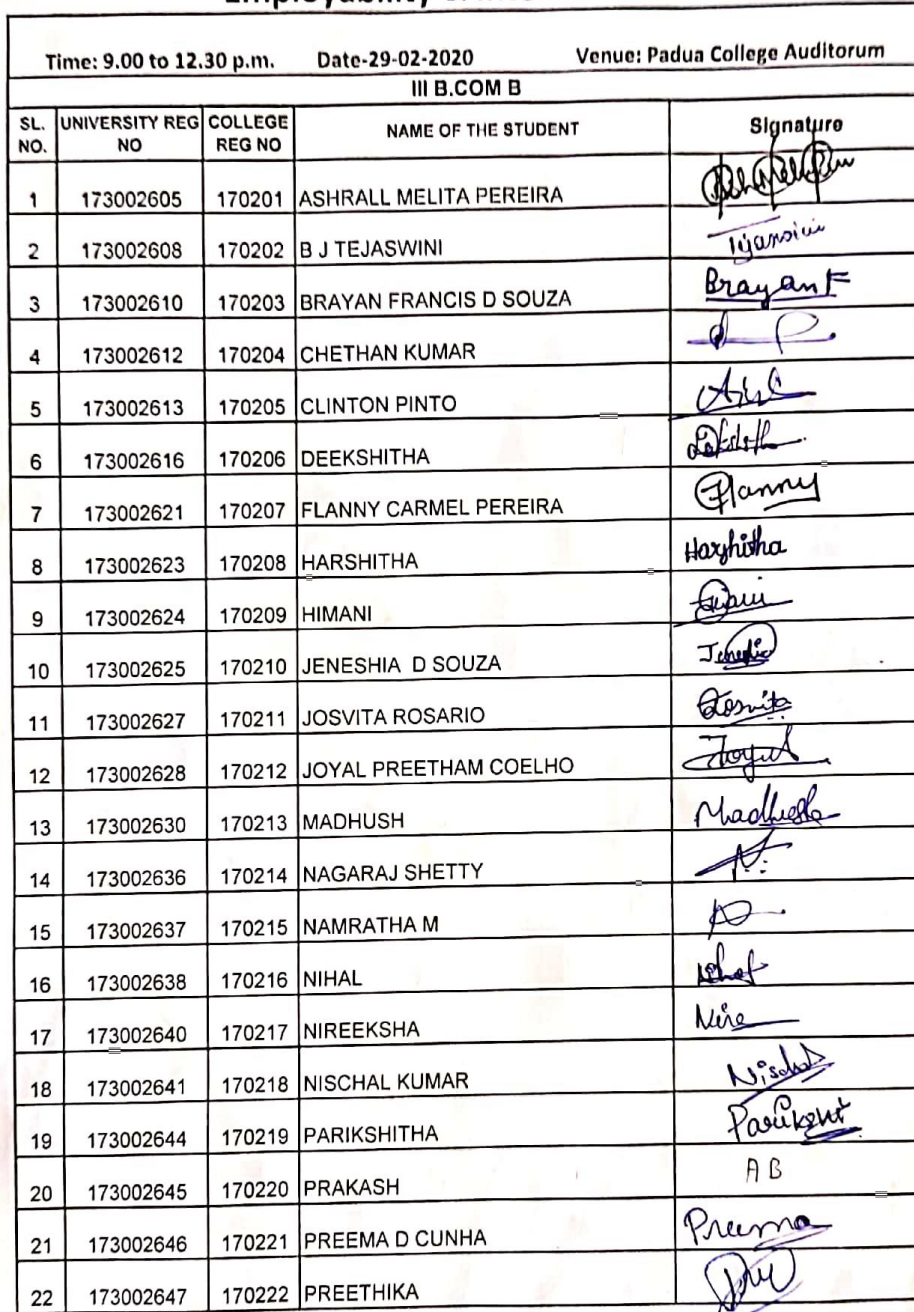 Time: 9.00 to 12.30 p.m. Date-29-02-2020 Venue: Padua College Auditorum
III B.COM B
SL. NO. UNIVERSITY REG NO COLLEGE REG NO NAME OF THE STUDENT Signature
1 173002605 170201 ASHRALL MELITA PEREIRA
2 173002608 170202 B J TEJASWINI
3 173002610 170203 BRAYAN FRANCIS D SOUZA Brayan F
4 173002612 170204 CHETHAN KUMAR
5 173002613 170205 CLINTON PINTO
6 173002616 170206 DEEKSHITHA
7 173002621 170207 FLANNY CARMEL PEREIRA Flanny
8 173002623 170208 HARSHITHA Harshitha
9 173002624 170209 HIMANI
10 173002625 170210 JENESHIA D SOUZA
11 173002627 170211 JOSVITA ROSARIO Josvita
12 173002628 170212 JOYAL PREETHAM COELHO
13 173002630 170213 MADHUSH
14 173002636 170214 NAGARAJ SHETTY
15 173002637 170215 NAMRATHA M
16 173002638 170216 NIHAL
17 173002640 170217 NIREEKSHA Nire
18 173002641 170218 NISCHAL KUMAR
19 173002644 170219 PARIKSHITHA
20 173002645 170220 PRAKASH A B
21 173002646 170221 PREEMA D CUNHA Preema
22 173002647 170222 PREETHIKA